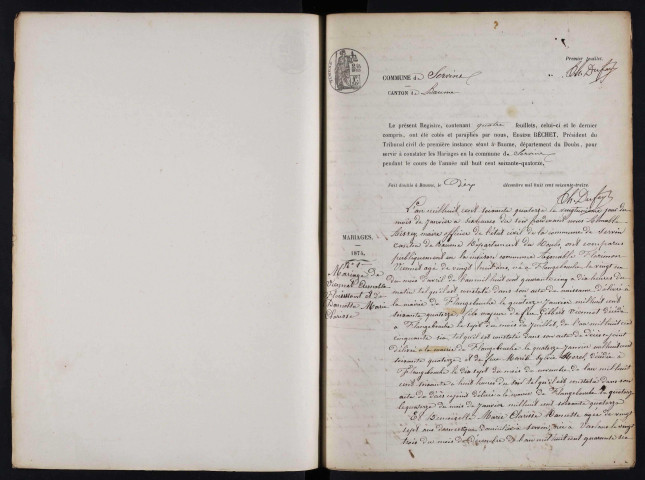 Premier feuillet
COMMUNE d Servin
CANTON d Baume
Le présent Registre, contenant quatre feuillets, celui-ci et le dernier
compris, ont été cotés et paraphés par nous, BÉCHET, Président du
Tribunal civil de première instance séant à Baume, département du Doubs, pour
servir à constater les Mariages en la commune de Servin
pendant le cours de l'année mil huit cent soixante-quatorze.
Fait double à Baume, le Dix décembre mil huit cent soixante-treize
MARIAGES.
1874.
N° 1
Mariage De
Vuemet
et de
Marie
Clarisse
L'an mil huit cent soixante quatorze le vingt du
mois de janvier à heures du soir nous
maire officier de l'état civil de la commune de Servin
canton de Baume Département du Doubs, ont comparu
publiquement en la maison commune
Vuemet agé de vingt huit ans, né à Flangebouche le vingt
du mois d'avril de l'an mil huit cent quarante cinq à dix heures du
matin tel qu'il est constaté dans son acte de naissance délivré à
la mairie de Flangebouche le quatorze janvier mil huit cent
soixante quatorze, fils majeur de feu Vuemet décédé
à Flangebouche le sept du mois de juillet de l'an mil huit cent
cinquante six, tel qu'il est constaté dans son acte de décès
délivré à la mairie de Flangebouche le quatorze janvier mil huit cent
soixante quatorze et de feu Marie Morel, décédée à
Flangebouche le dix sept du mois de novembre de l'an mil huit
cent soixante à huit heures du soir tel qu'il est constaté dans son
acte de décès délivré à la mairie de Flangebouche le
quatorze du mois de janvier mil huit cent soixante quatorze
Et Marie Clarisse agée de vingt
sept ans domestique domiciliée à Servin, née à le vingt
trois du mois de Décembre de l'an mil huit cent quarante six